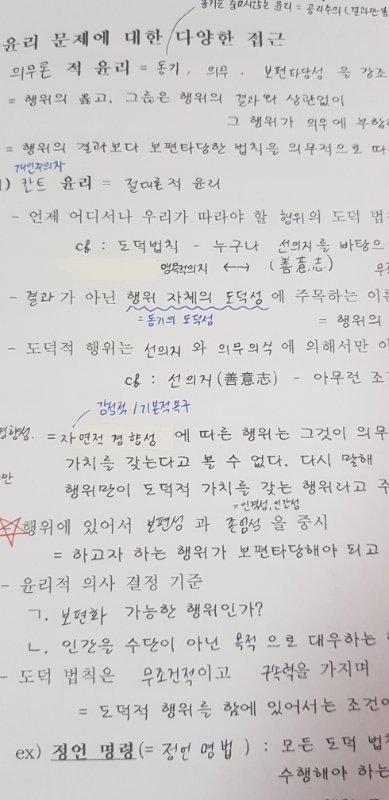 동기는 중요시않는 윤리 = 공리주의 (결과만
윤리 문제에 대한 다양한 접근
의무론 적 윤리 = 동기, 의무, 보편타당성 을 강조
= 행위의 옳고, 그름은 행위의 결과와 상관없이
그 행위가 의무에 부합
= 행위의 결과보다 보편타당한 법칙을 의무적으로 따
개인주의자
1) 칸트 윤리 = 절대론적 윤리
- 언제 어디서나 우리가 따라야 할 행위의 도덕 법
cf : 도덕법칙 - 누구나 선의지를 바탕으
맹목적의지 ↔ (善意志)
- 결과가 아닌 행위 자체의 도덕성에 주목하는 이론
= 동기의 도덕성
= 행위의
- 도덕적 행위는 선의지와 의무의식에 의해서만 이
cf : 선의지(善意志) - 아무런 조
감정적 / 기본적욕구
경향성. = 자연적 경향성 에 따른 행위는 그것이 의무
가치를 갖는다고 볼 수 없다. 다시 말해
행위만이 도덕적 가치를 갖는 행위라고 주
= 인격성, 인간성
- 행위에 있어서 보편성 과 존엄성 을 중시
= 하고자 하는 행위가 보편타당해야 되고
- 윤리적 의사 결정 기준
ㄱ. 보편화 가능한 행위인가?
ㄴ. 인간을 수단이 아닌 목적 으로 대우하는
- 도덕 법칙은 무조건적이고 구속력을 가지며
= 도덕적 행위를 함에 있어서는 조건이
ex) 정언 명령(= 정언 명법 ) : 모든 도덕 법칙
수행해야 하는